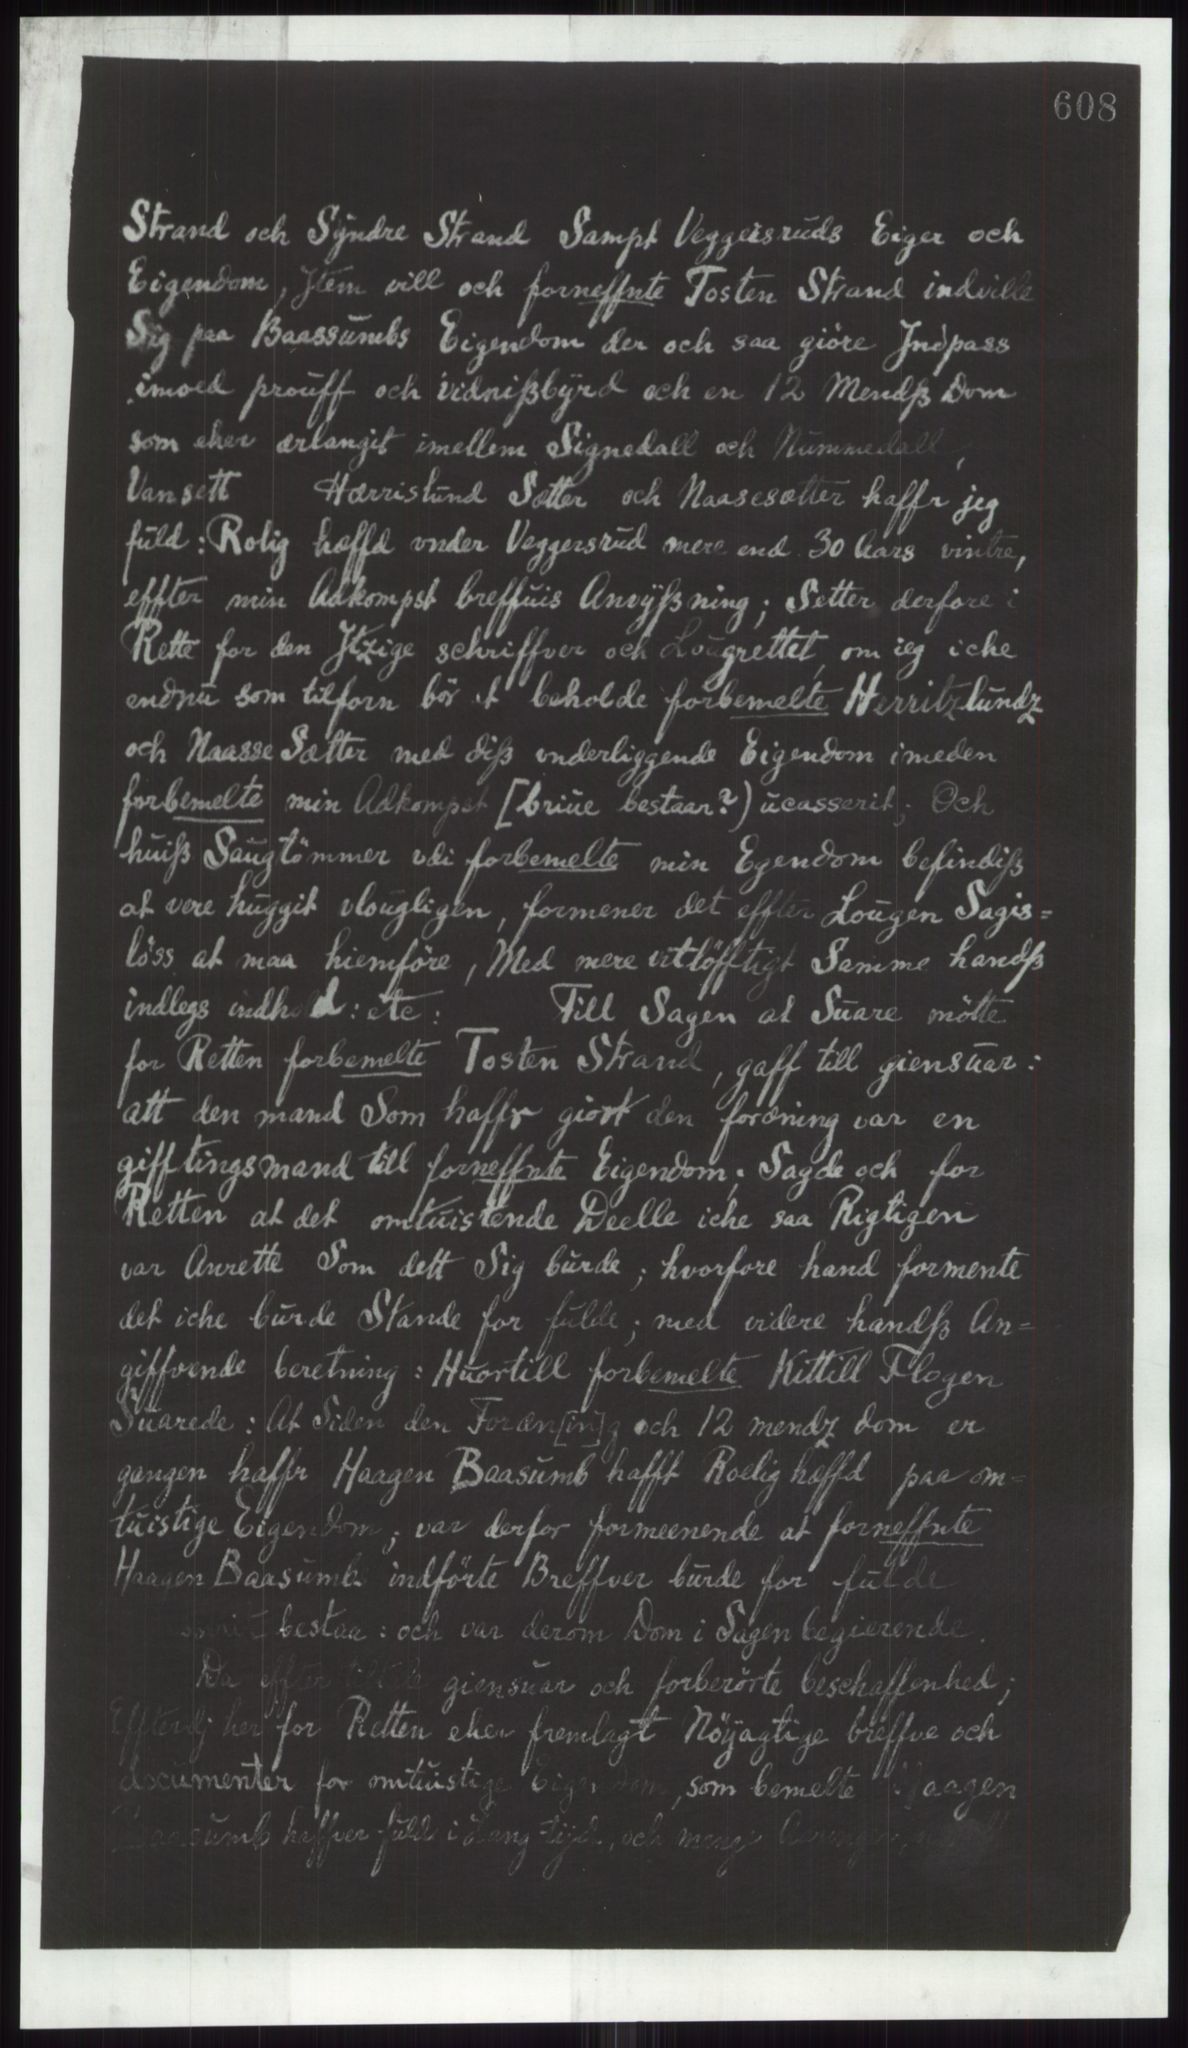 608
Strand och Sÿndre Strand Sampt Veggersruds Eiger och
Eigendom, Jtem vill och forneffnte Tosten Strand indville
Sig paa Baassumbs Eigendom der och saa giöre Jndpass
imoed prouff och vidnißbÿrd och en 12 Mendß Dom
som eher ærlangit imellem Signedall och Nummedall,
Vansett Hærrislund Sætter och Naasesætter haffr jeg
fuld: Rolig hæffd vnder Veggersrud mere end 30 Aars vintre,
effter min Adkompst breffuis Anvÿßning; Setter derfore i
Rette for den Jtzige schriffver och Lougrettet, om jeg iche
endnu som tilforn bör at beholde forbemelte Herritzlundz
och Naasse Sætter med diß vnderliggende Eigendom imeden
forbemelte min Adkompst [briue bestaar?) ucasserit; Och
huiß Saugtömmer vdi forbemelte min Egendom befindiß
at vere huggit vlougligen, formener det effter Lougen Sagis=
löss at maa hiemföre, Med mere vitlöfftigt Samme handß
indlegs indhold: etc: Till Sagen at Suare mötte
for Retten forbemelte Tosten Strand, gaff till giensuar:
att den mand Som haffr giort den foræning var en
gifftingsmand till forneffnte Eigendom; Sagde och for
Retten at det omtuistende Deelle iche saa Rigtigen
var Anrette Som dett Sig burde; hvorfore hand formente
det iche burde Stande for fulde; med videre handß An=
giffvende beretning: Huortill forbemelte Kittill Flogen
Suarede: At Siden den Foræn[in]g och 12 mendz dom er
gangen haffr Haagen Baasumb hafft Roelig hæffd paa om=
tuistige Eigendom; var derfor formeenende at forneffnte
Haagen Baasumb indförte Breffver burde for fulde
bestaa: och var derom Dom i Sagen begierende.
Da effter giensuar och forberörte beschaffenhed;
Effterdj her for Retten eher fremlagt Nöÿagtige breffve och
documenter for omtuistige Eigendom, som bemelte Haagen
Baasumb haffver fuldt i Lang tÿd, och mange